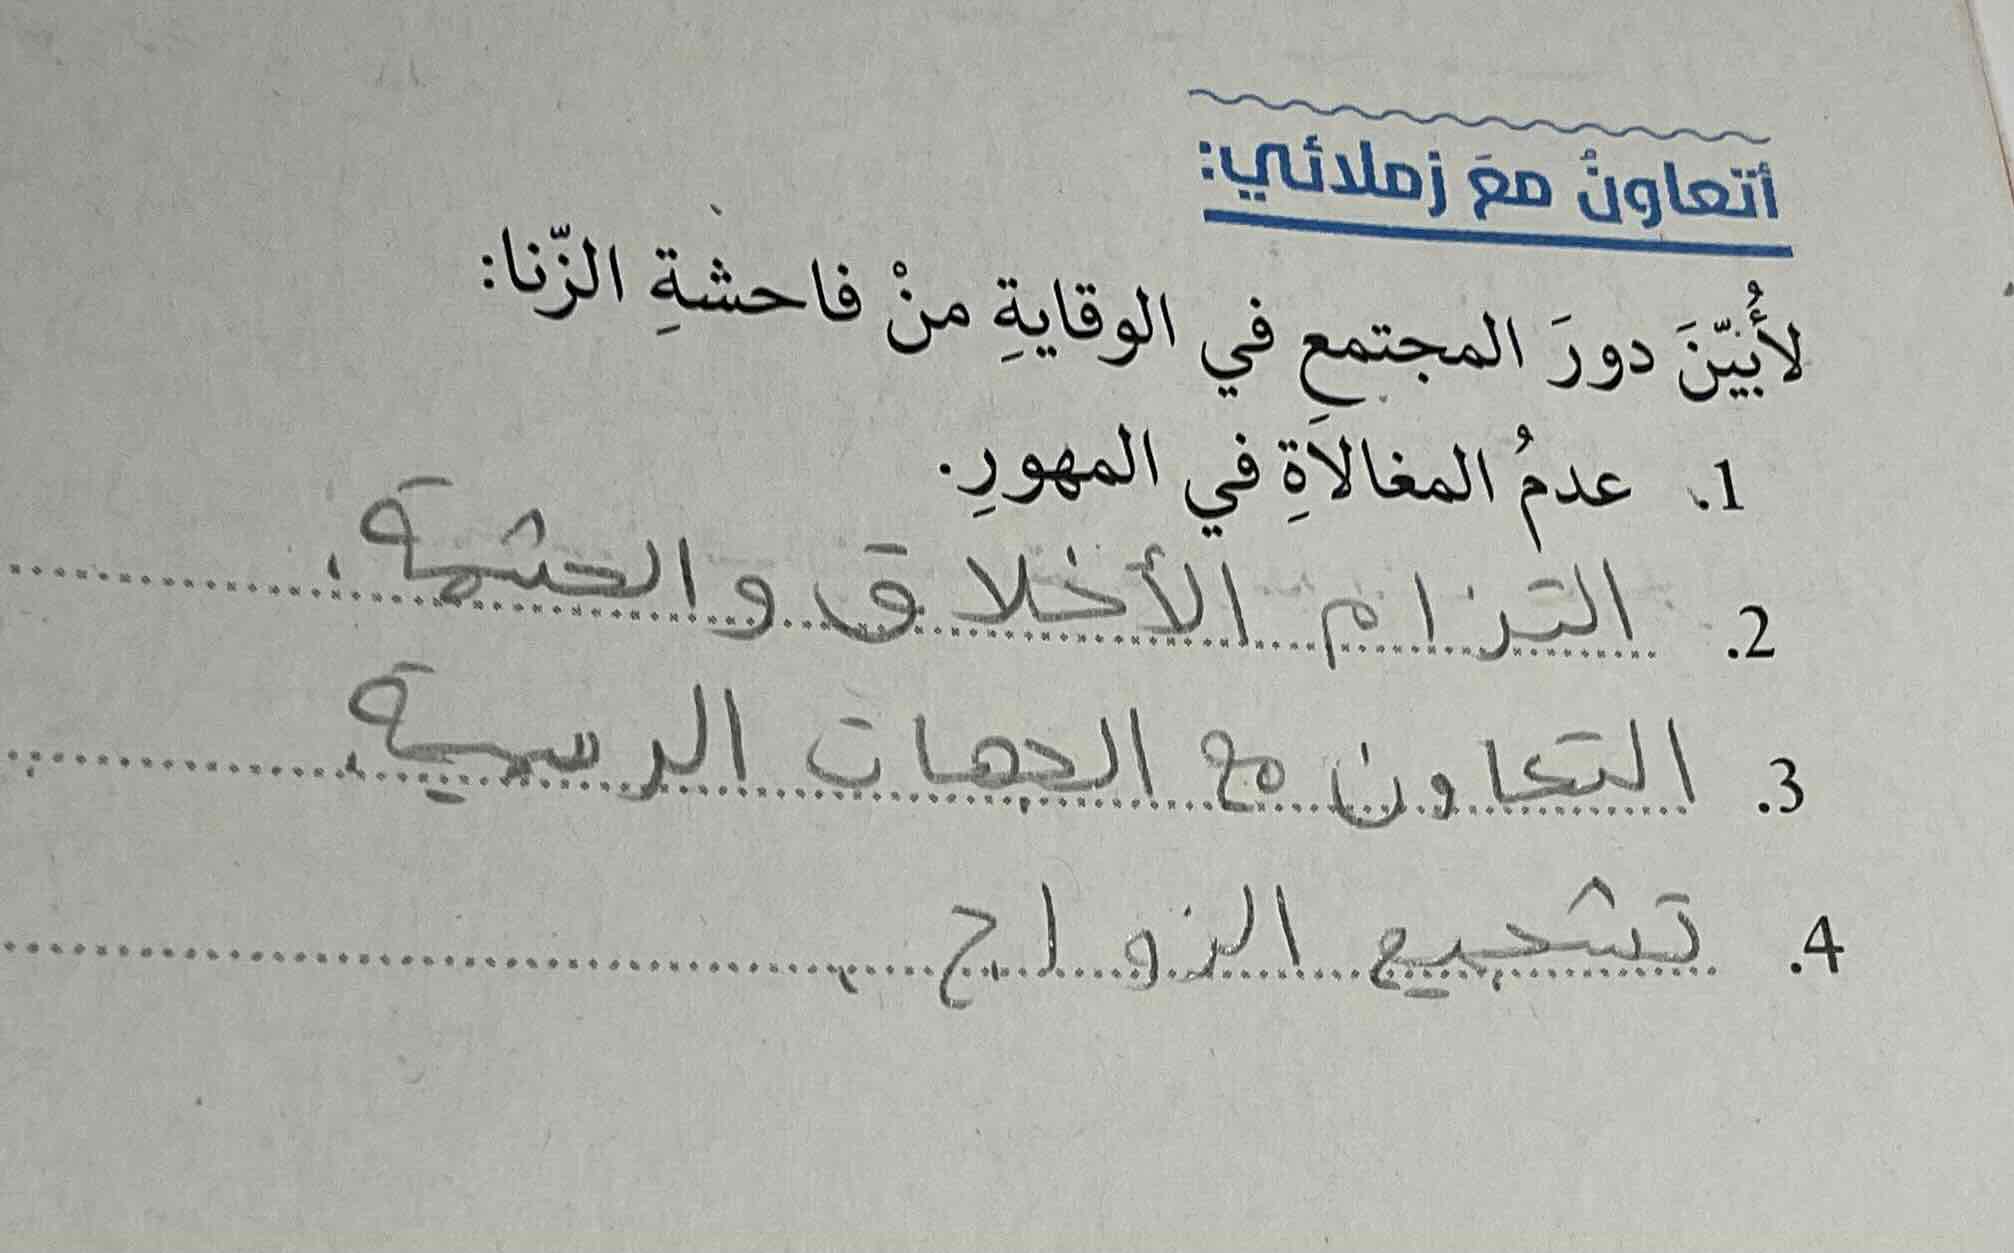 أتعاونُ معَ زملائي:
لأُبيّنَ دورَ المجتمعِ في الوقايةِ منْ فاحشةِ الزّنا:
1. عدمُ المغالاةِ في المهورِ.
2. التزام الأخلاق والحشمة.
3. التعاون مع الجهات الرسمية.
4. تشجيع الزواج.